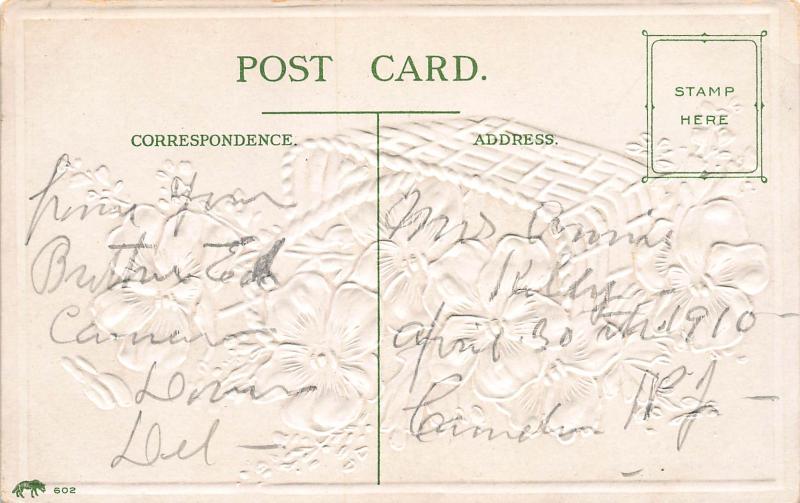 POST CARD.
CORRESPONDENCE.
ADDRESS.
STAMP
HERE
from your
Brother Ed
Dover
Del —
Mrs Annie
Kelly —
April 30th 1910 —
Camden N.J —
602